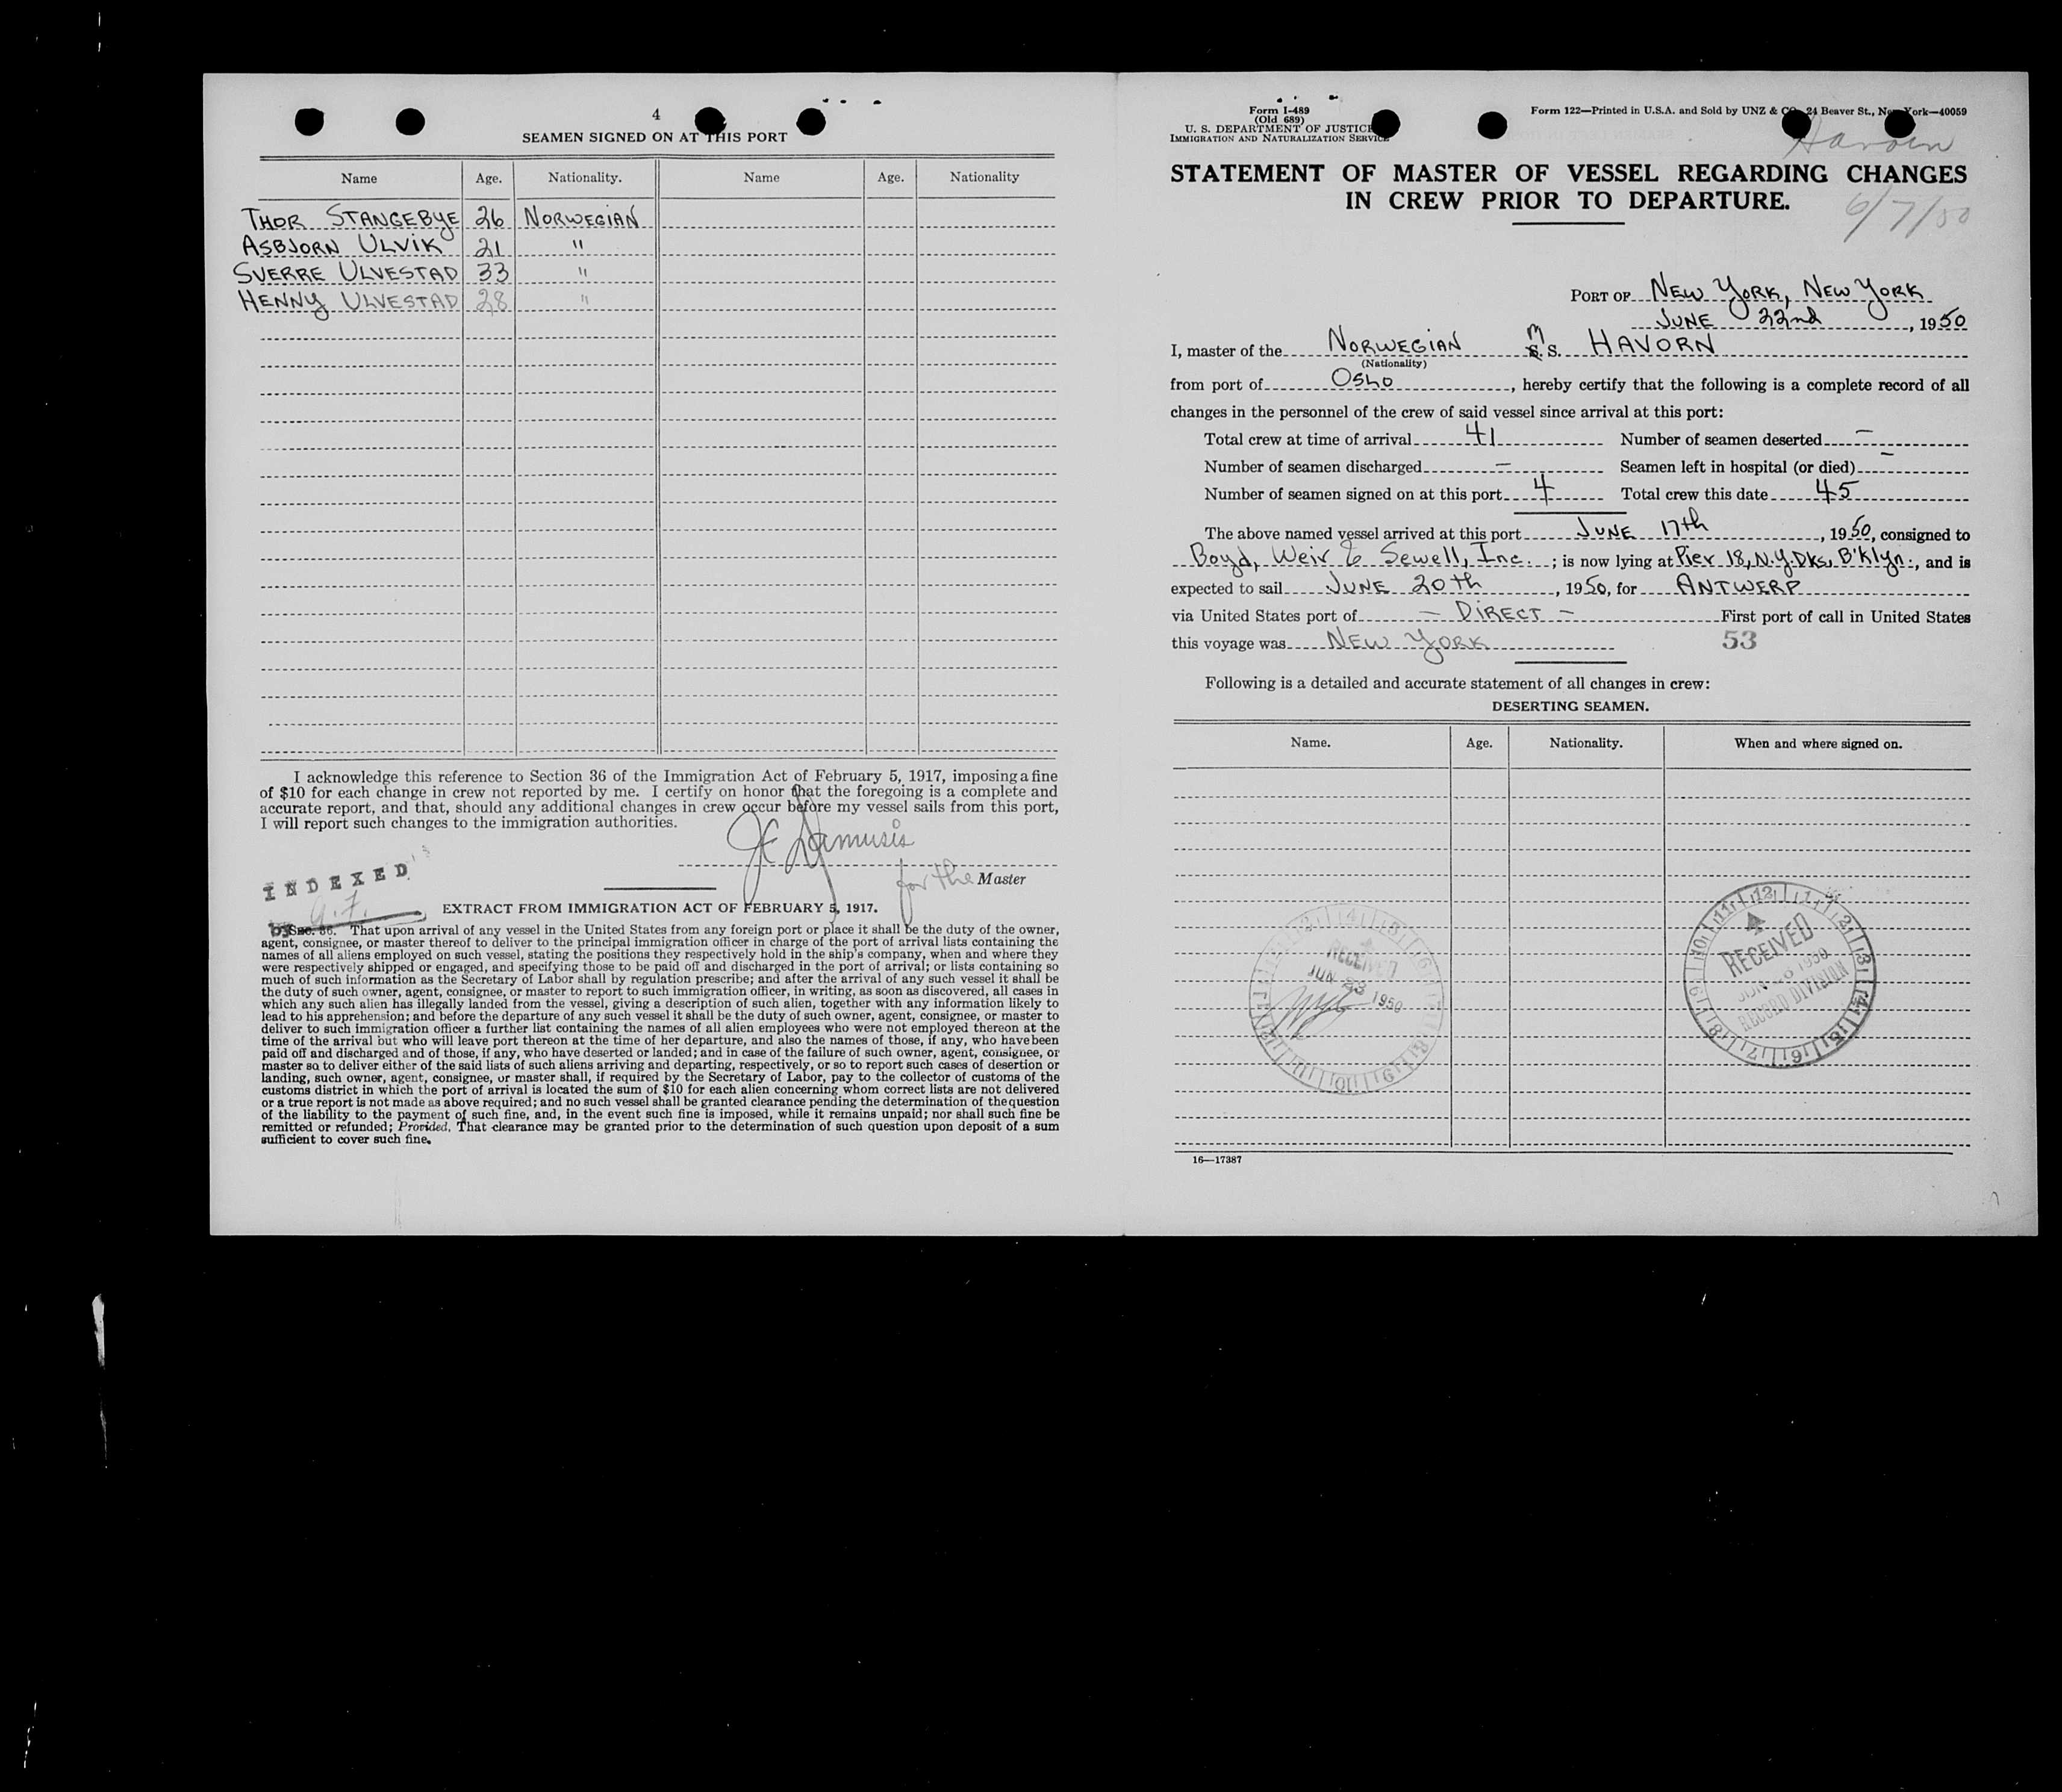 4
SEAMEN SIGNED ON AT THIS PORT
Name Age. Nationality. Name Age. Nationality
THOR STANGEBYE 26 NORWEGIAN
ASBJORN ULVIK 21 "
SVERRE ULVESTAD 33 "
HENNY ULVESTAD 28 "
I acknowledge this reference to Section 36 of the Immigration Act of February 5, 1917, imposing a fine
of $10 for each change in crew not reported by me. I certify on honor that the foregoing is a complete and
accurate report, and that, should any additional changes in crew occur before my vessel sails from this port,
I will report such changes to the immigration authorities.
for the Master
INDEXED
EXTRACT FROM IMMIGRATION ACT OF FEBRUARY 5, 1917.
by Sec. 36. That upon arrival of any vessel in the United States from any foreign port or place it shall be the duty of the owner,
agent, consignee, or master thereof to deliver to the principal immigration officer in charge of the port of arrival lists containing the
names of all aliens employed on such vessel, stating the positions they respectively hold in the ship's company, when and where they
were respectively shipped or engaged, and specifying those to be paid off and discharged in the port of arrival; or lists containing so
much of such information as the Secretary of Labor shall by regulation prescribe; and after the arrival of any such vessel it shall be
the duty of such owner, agent, consignee, or master to report to such immigration officer, in writing, as soon as discovered, all cases in
which any such alien has illegally landed from the vessel, giving a description of such alien, together with any information likely to
lead to his apprehension; and before the departure of any such vessel it shall be the duty of such owner, agent, consignee, or master to
deliver to such immigration officer a further list containing the names of all alien employees who were not employed thereon at the
time of the arrival but who will leave port thereon at the time of her departure, and also the names of those, if any, who have been
paid off and discharged and of those, if any, who have deserted or landed; and in case of the failure of such owner, agent, consignee, or
master so to deliver either of the said lists of such aliens arriving and departing, respectively, or so to report such cases of desertion or
landing, such owner, agent, consignee, or master shall, if required by the Secretary of Labor, pay to the collector of customs of the
customs district in which the port of arrival is located the sum of $10 for each alien concerning whom correct lists are not delivered
or a true report is not made as above required; and no such vessel shall be granted clearance pending the determination of the question
of the liability to the payment of such fine, and, in the event such fine is imposed, while it remains unpaid; nor shall such fine be
remitted or refunded; Provided, That clearance may be granted prior to the determination of such question upon deposit of a sum
sufficient to cover such fine.
Form I-489
(Old 689)
U. S. DEPARTMENT OF JUSTICE
IMMIGRATION AND NATURALIZATION SERVICE
Form 122—Printed in U.S.A. and Sold by UNZ & CO., 24 Beaver St., New York—40059
Havorn
STATEMENT OF MASTER OF VESSEL REGARDING CHANGES
IN CREW PRIOR TO DEPARTURE.
6/7/50
PORT OF NEW YORK, NEW YORK
JUNE 22nd, 1950
I, master of the NORWEGIAN M S. HAVORN
(Nationality)
from port of OSLO, hereby certify that the following is a complete record of all
changes in the personnel of the crew of said vessel since arrival at this port:
Total crew at time of arrival 41 Number of seamen deserted —
Number of seamen discharged — Seamen left in hospital (or died) —
Number of seamen signed on at this port 4 Total crew this date 45
The above named vessel arrived at this port JUNE 17th, 1950, consigned to
Boyd, Weir & Sewell, Inc.; is now lying at Pier 18, N.Y. Dks, B'klyn., and is
expected to sail JUNE 20th, 1950, for ANTWERP
via United States port of — DIRECT — First port of call in United States
this voyage was NEW YORK 53
Following is a detailed and accurate statement of all changes in crew:
DESERTING SEAMEN.
Name. Age. Nationality. When and where signed on.
RECEIVED
JUN 23 1950
RECEIVED
1950
RECORD DIVISION
16—17387